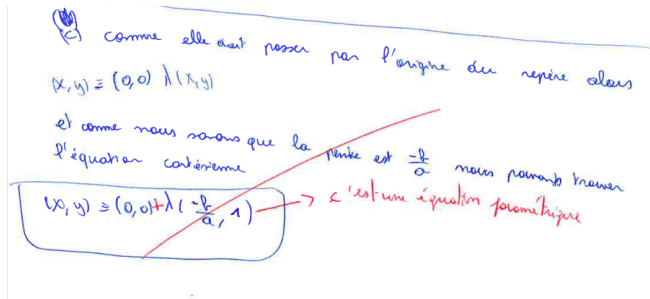 (c) comme elle doit passer par l'origine du repère alors
(x,y) ≡ (0,0) λ(x,y)
et comme nous savons que la pente est -b/a nous pouvons trouver
l'équation cartésienne
(x,y) ≡ (0,0)+λ(-b/a, 1) → c'est une équation paramétrique